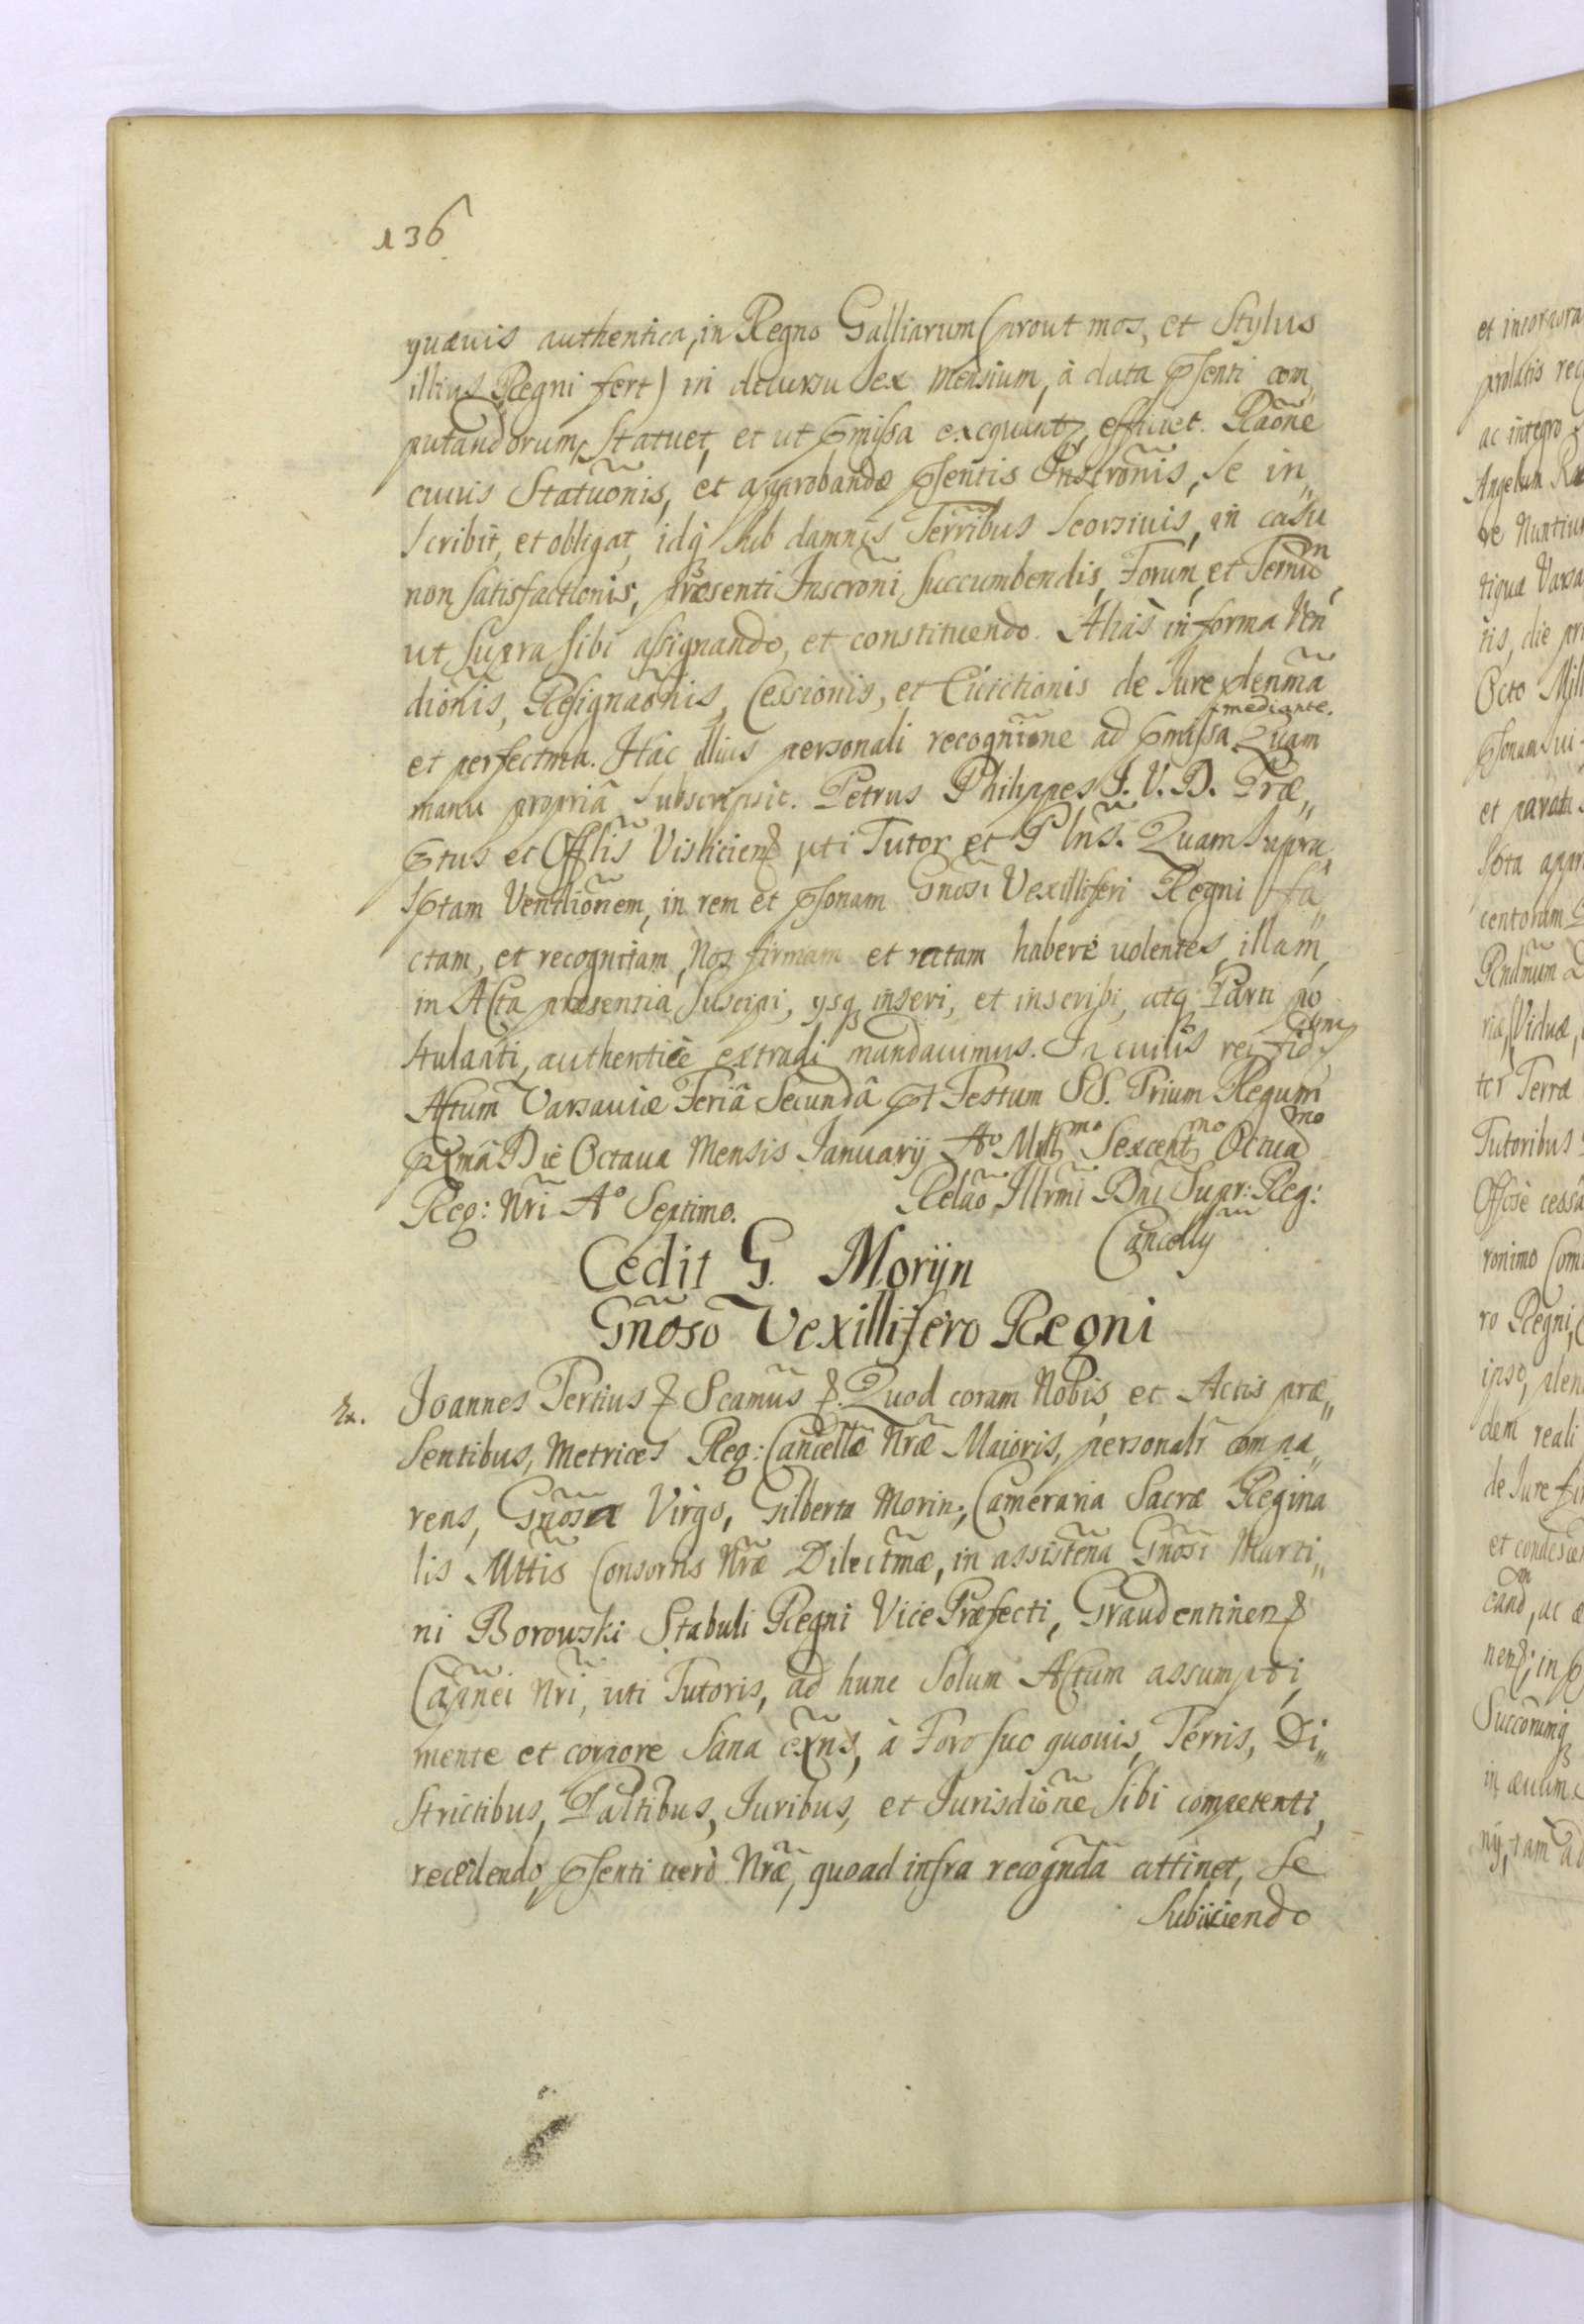 136
quævis authentica, in Regno Galliarum (prout mos, et Stylus
illius Regni fert) in decursu Sex Mensium, à data pſenti com„
putandorum, Statuet, et ut pmiſsa exequantʒ, efficiet. Raõne
cuius Statuõnis, et approbandæ pſentis Inscrõnis, Se in„
scribit, et obligat, idqꝫ sub damnis Terr̃ibus Seorsivis, in casu
non satisfactionis, præsenti Inscrõni Succumbendis, Forum, et Termũ
ut supra sibi aſsignando, et constituendo. Aliàs in forma Ven
diõnis, Resignaõnis, Cessionis, et Euictionis de Jure plenm̃a
et perfectma. Hac illius personali recognĩone ad pmiſsa mediante. Quam
manu propriâ subscripsit. Petrus Philippes J. V. D. Præ„
ptus et Offlis̃ Vislicien uti Tutor et Plns̃. Quam supra
Sptam Vendiõnem, in rem et pſonam Gnosĩ Vexilliferi Regni fa„
ctam, et recognitam, Nos firmam et ratam habere uolentes, illam
in Acta præsentia Suscipi, ysqꝫ inseri, et inscribi, atqꝫ Parti po
stulanti, authenticè extradi mandauimus. In cuius rei fid
Actum Varsauiæ Feriâ Secundâ pt Festum SS. Trium Regum
pxmâ Die Octaua Mensis Januarij Aº Mill mo Sexcent mo Octua mo
Reg: Nrĩ Aº Septimo. Relaõ Illrm̃i Dnĩ Supr: Reg:
Cancellỹ
Cedit G. Morijn
Gnõso Vexillifero Regni
Joannes Tertius Scam̃us. Quod coram Nobis, et Actis præ„
sentibus, Metrices Reg: Cancellæ̃ Nræ̃ Maioris, personalr̃ compa„
rens, Gnõsa Virgo, Gilberta Morin, Cameraria Sacræ Regina
lis Mttis Consortis Nræ̃ Dilectm̃æ, in assistẽna Gnõsi Marti„
ni Borowski Stabuli Regni Vice Præfecti, Graudentinen
Capnẽi Nrĩ, uti Tutoris, ad hunc Solum Actum assumpti,
mente et corpore Sana exñs, à Foro suo quouis, Terris, Di„
strictibus, Paltibus, Juribus, et Jurisdiõne sibi competenti,
recedendo, pſenti uerò Nræ̃, quoad infra recogñda attinet, Se
Subijciendo
et incorpora
prolatis rec
ac integro
Angelum
re Nuntiu
tiquæ Varsa
tis, die pri
Octo Mill
pſonam sui
et parati
Spta appr
centorum
Rndm̃um D
Viduæ,
ter Terræ
Tutoribus
Officiè cessa
ronimo Com
ro Regni,
ipso, plen
dem reali
de Jure fir
et condesce
cand, ac
nen, in
Succorumqꝫ
in æuum.
nij, tam ad